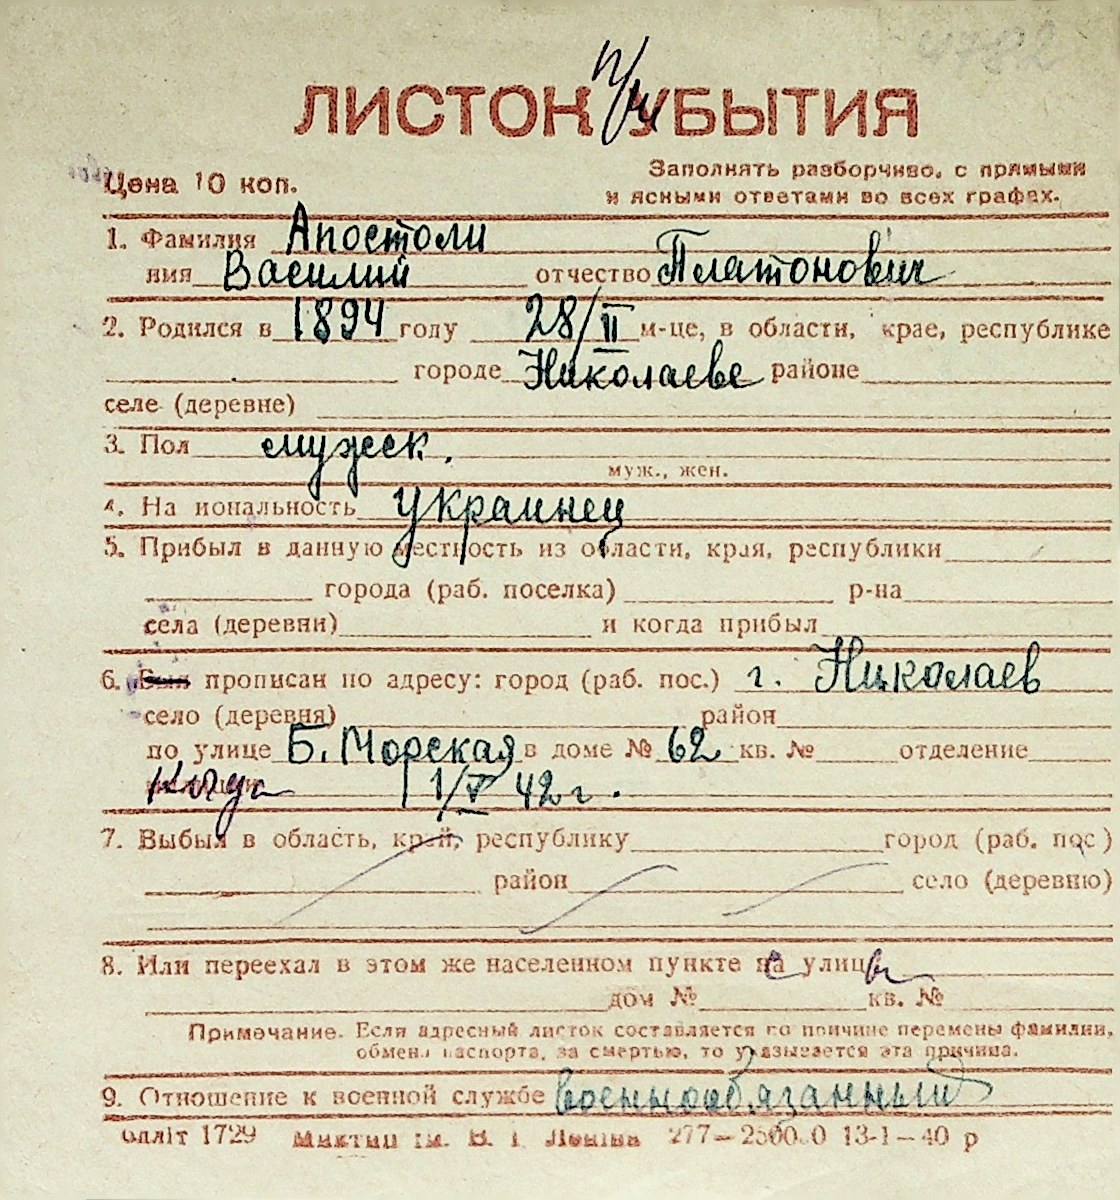 4782
ЛИСТОК УБЫТИЯ
Цена 10 коп.
Заполнять разборчиво, с прямыми
и ясными ответами во всех графах.
1. Фамилия Апостоли
имя Василий отчество Платонович
2. Родился в 1894 году 28/II м-це, в области, крае, республике
городе Николаеве районе
селе (деревне)
3. Пол мужск.
муж., жен.
4. На иональность украинец
5. Прибыл в данную местность из области, края, республики
города (раб. поселка) р-на
села (деревни) и когда прибыл
6. Был прописан по адресу: город (раб. пос.) г. Николаев
село (деревня) район
по улице Б. Морская в доме № 62 кв. № отделение
Когда 1/V 42 г.
7. Выбыл в область, край, республику город (раб. пос.)
район село (деревню)
8. Или переехал в этом же населенном пункте с улицы
дом № кв. №
Примечание. Если адресный листок составляется по причине перемены фамилии,
обмена паспорта, за смертью, то указывается эта причина.
9. Отношение к военной службе военнообязанный
облліт 1729 ім. В. І. Леніна 277— 13-1—40 р